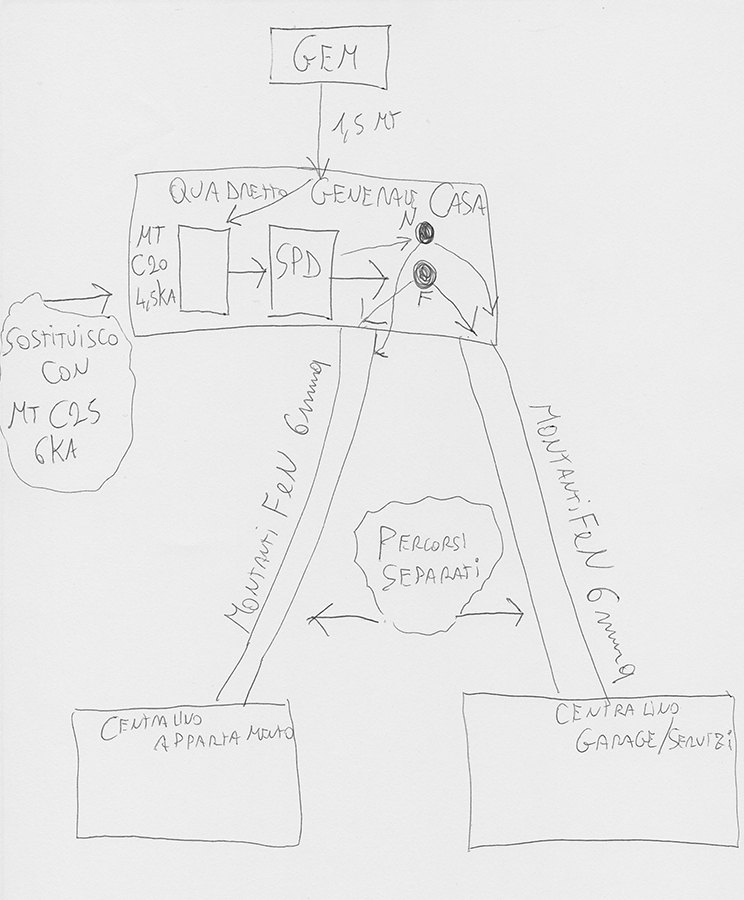 GEM
1,5 MT
QUADRETTO GENERALE CASA
N
MT
C20
4,5KA
SPD
F
SOSTITUISCO
CON
MT C25
6KA
MONTANTI FeN 6mmq
MONTANTI FeN 6mmq
PERCORSI
SEPARATI
CENTRALINO
APPARTAMENTO
CENTRALINO
GARAGE/SERVIZI